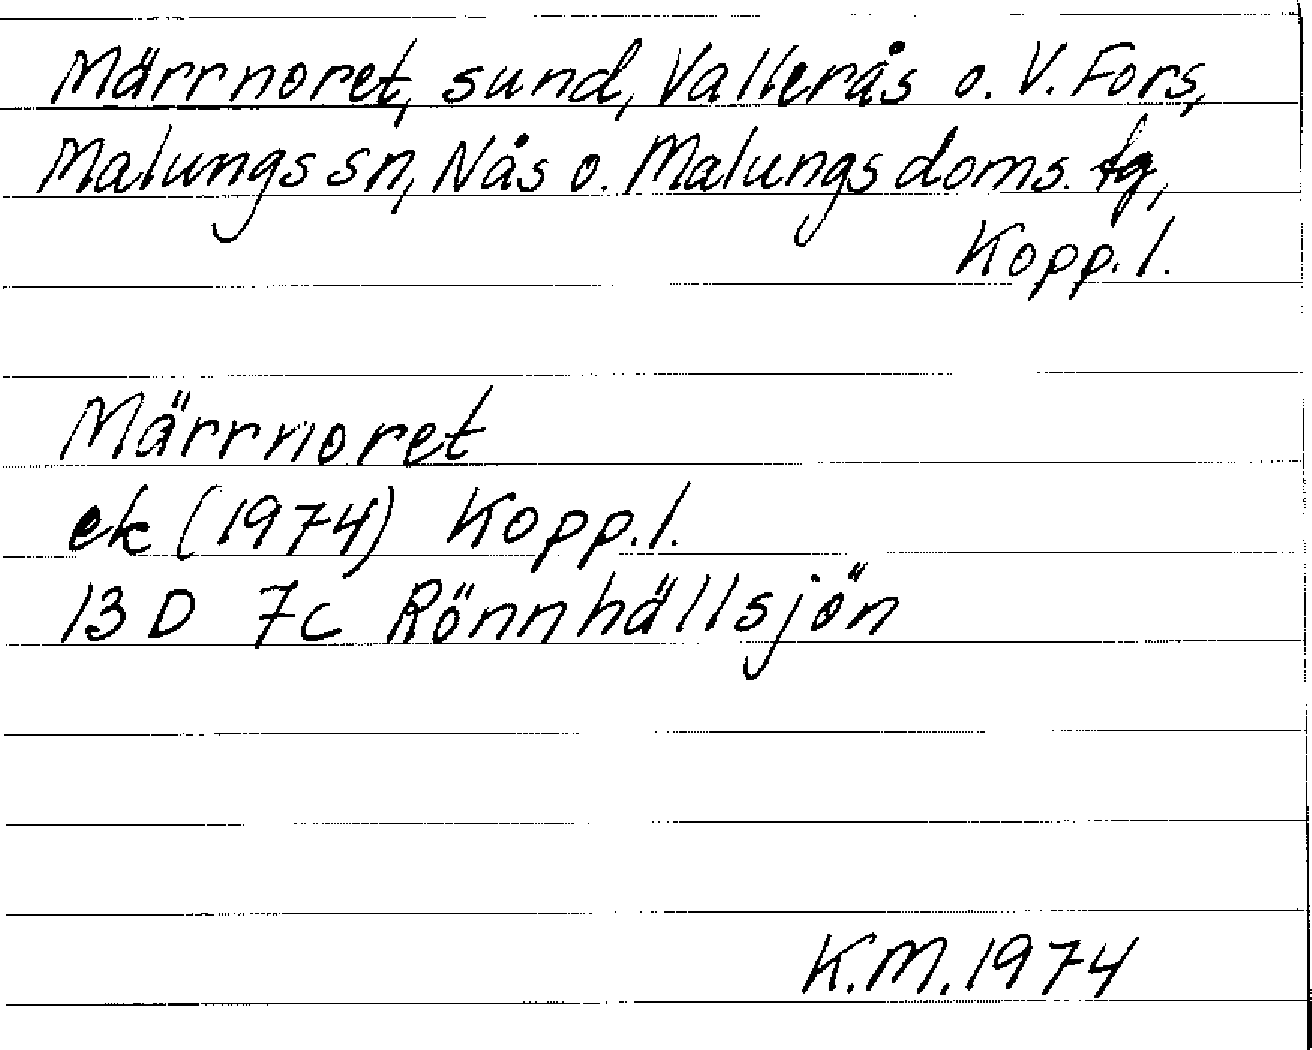 Märrnoret, sund, Vallerås o. V. Fors,
Malungs sn, Nås o. Malungs doms. tg,
Kopp. l.
Märrnoret
ek (1974) Kopp. l.
13 D 7c Rönnhällsjön
K.M. 1974